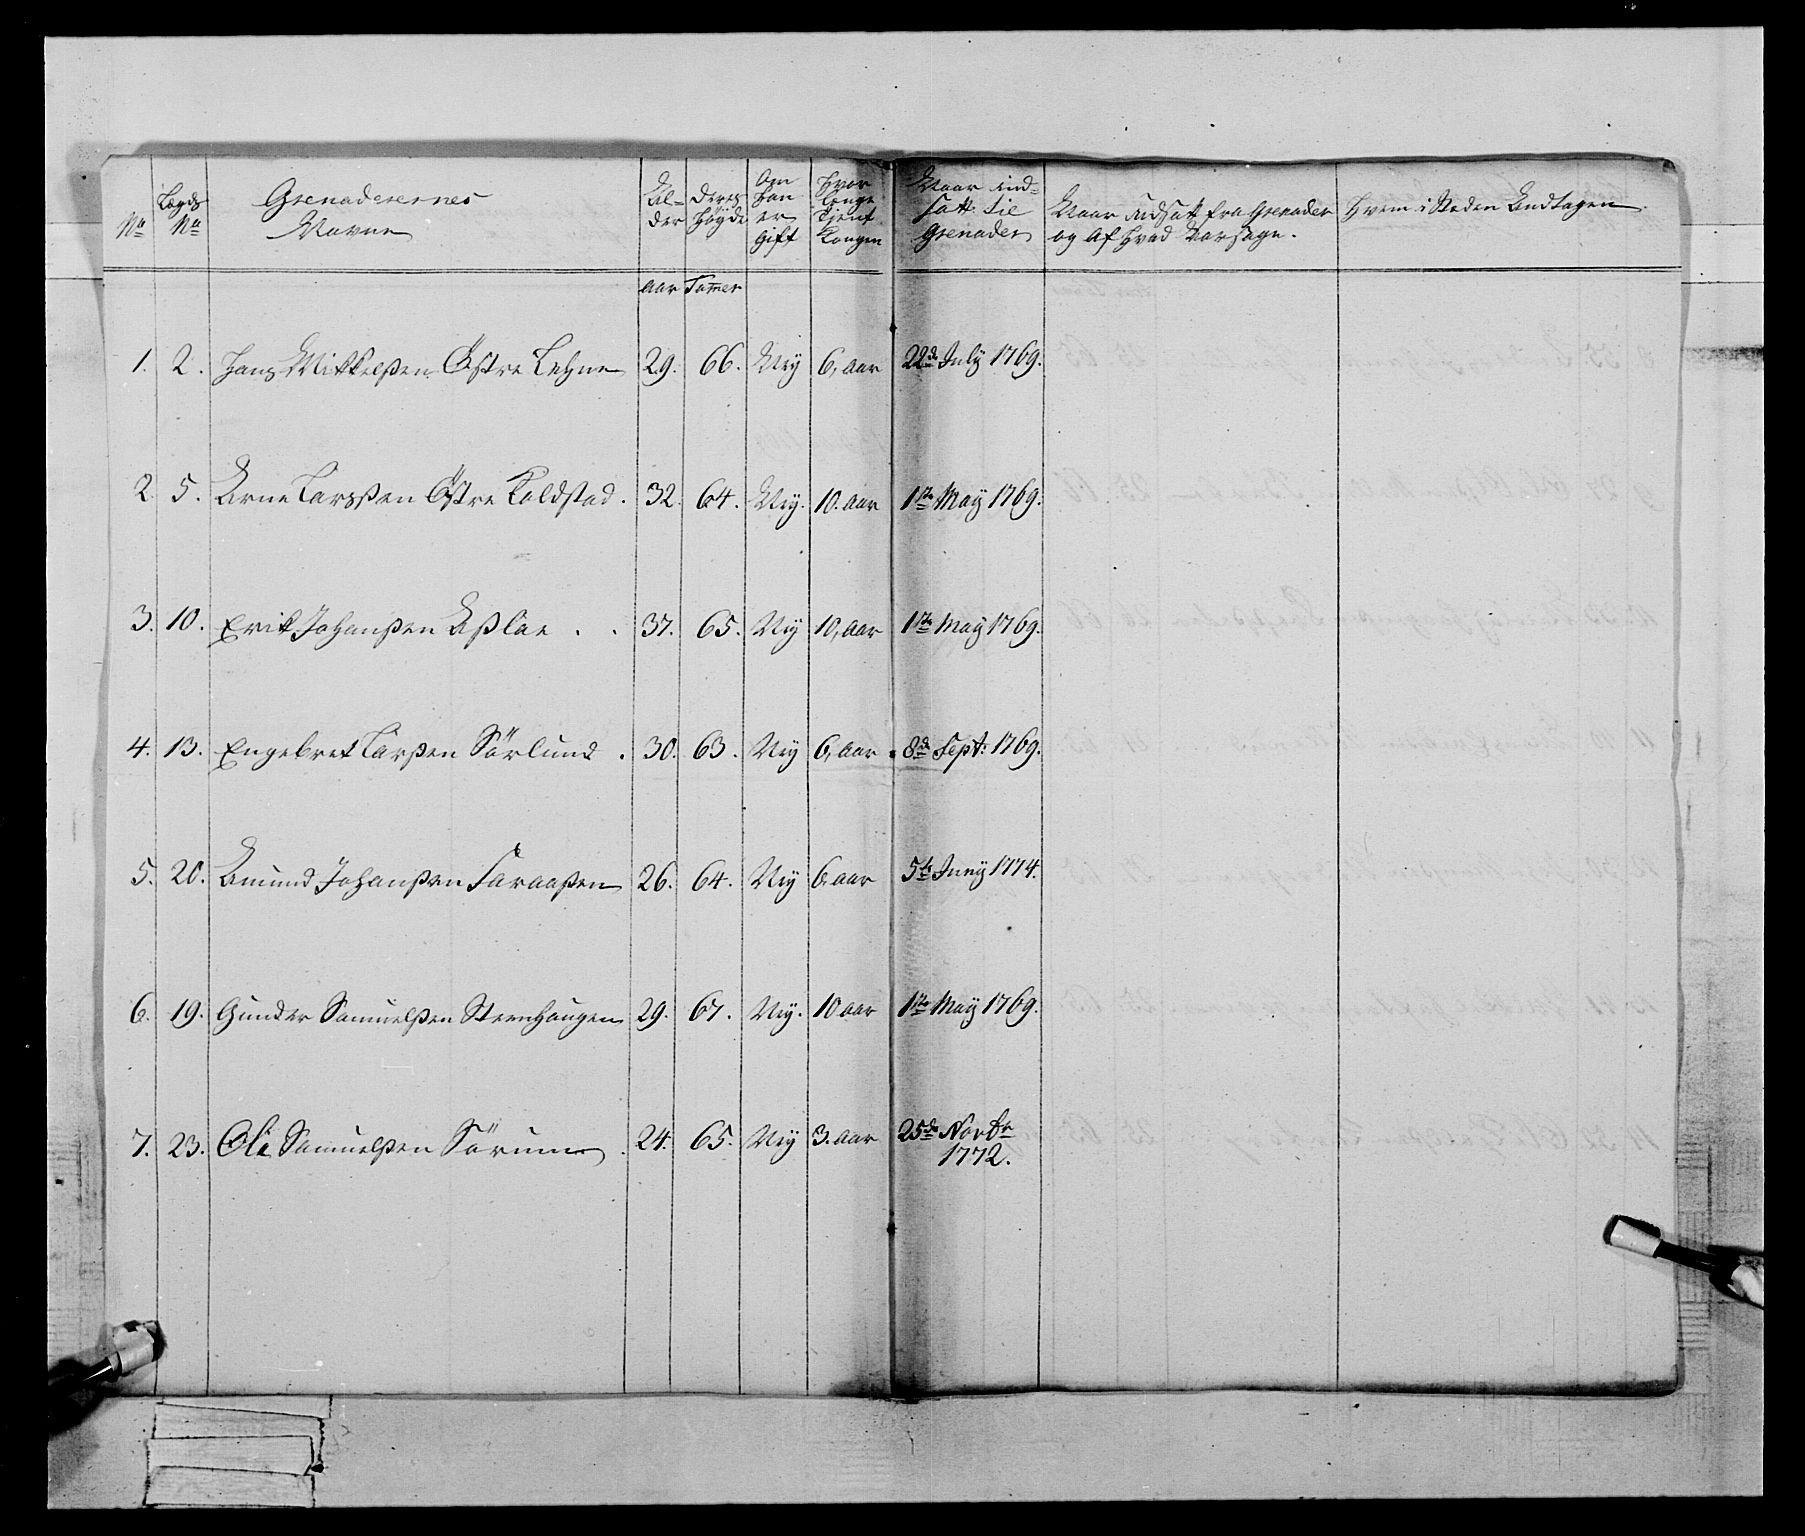 No
Lægds No
Grenaderernes Navne
Al-der
Deres Høyde
Om han er Gift
Hvor længe Tient Kongen
Naar ind-satt til Grenader
Naar udsatt fra Grenader og af hvad Aarsage.
Hvem i Steden Andtagen
Aar Tomer
1. 2. Hans Mikkelßen Østre Lehne 29. 66. Ney 6, aar 22de July 1769.
2 5. Arne Larsßen Østre Koldstad. 32. 64. Ney. 10. aar 1te May 1769.
3. 10. Erik Johanßen Aßlae . . 37. 65. Ney 10, aar 1te May 1769.
4. 13. Engebret Larßen Sörlund . 30. 63. Ney 6, aar 8de Sept: 1769.
5. 20. Amund Johanßen Taraaßen 26. 64. Ney 6. aar 5te Juny 1774.
6. 19. Gunder Samuelßen Steenhaugen 29. 67. Ney. 10 aar 1te May 1769.
7. 23. Ole Samuelßen Sörum . 24. 65. Ney 3. aar 25de Novbr
1772.